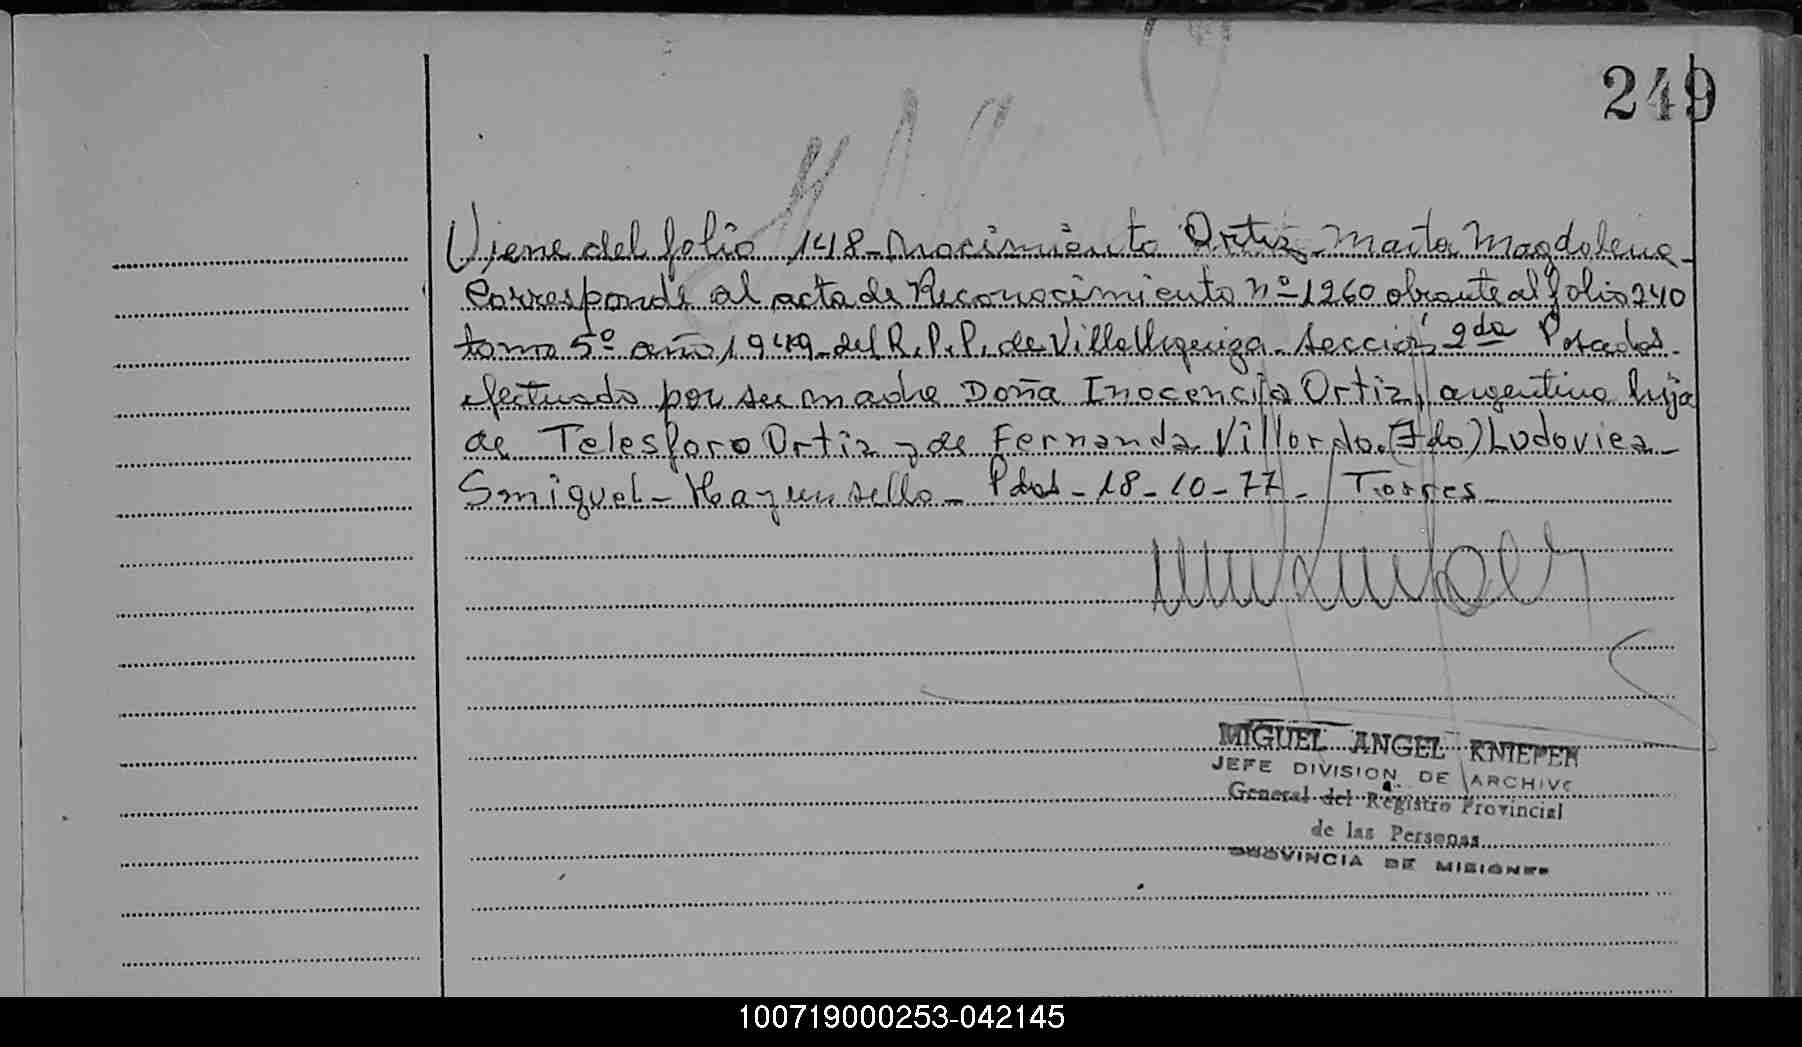 249
Viene del folio 148-Nacimiento Ortiz Marta Magdalena-
Corresponde al acta de Reconocimiento nº 1260 obrante al folio 240
tomo 5º año 1949-del R.P.P. de Villa Urquiza-Sección 2da Posadas-
efectuado por su madre Doña Inocencia Ortiz, argentina hija
de Telesforo Ortiz y de Fernanda Villordo.(Fdo) Ludovica-
Smiguel-Hay un sello-Pdas-18-10-77- Torres
MIGUEL ANGEL KNIEPEN
JEFE DIVISION DE ARCHIVO
General del Registro Provincial
de las Personas
PROVINCIA DE MISIONES
100719000253-042145